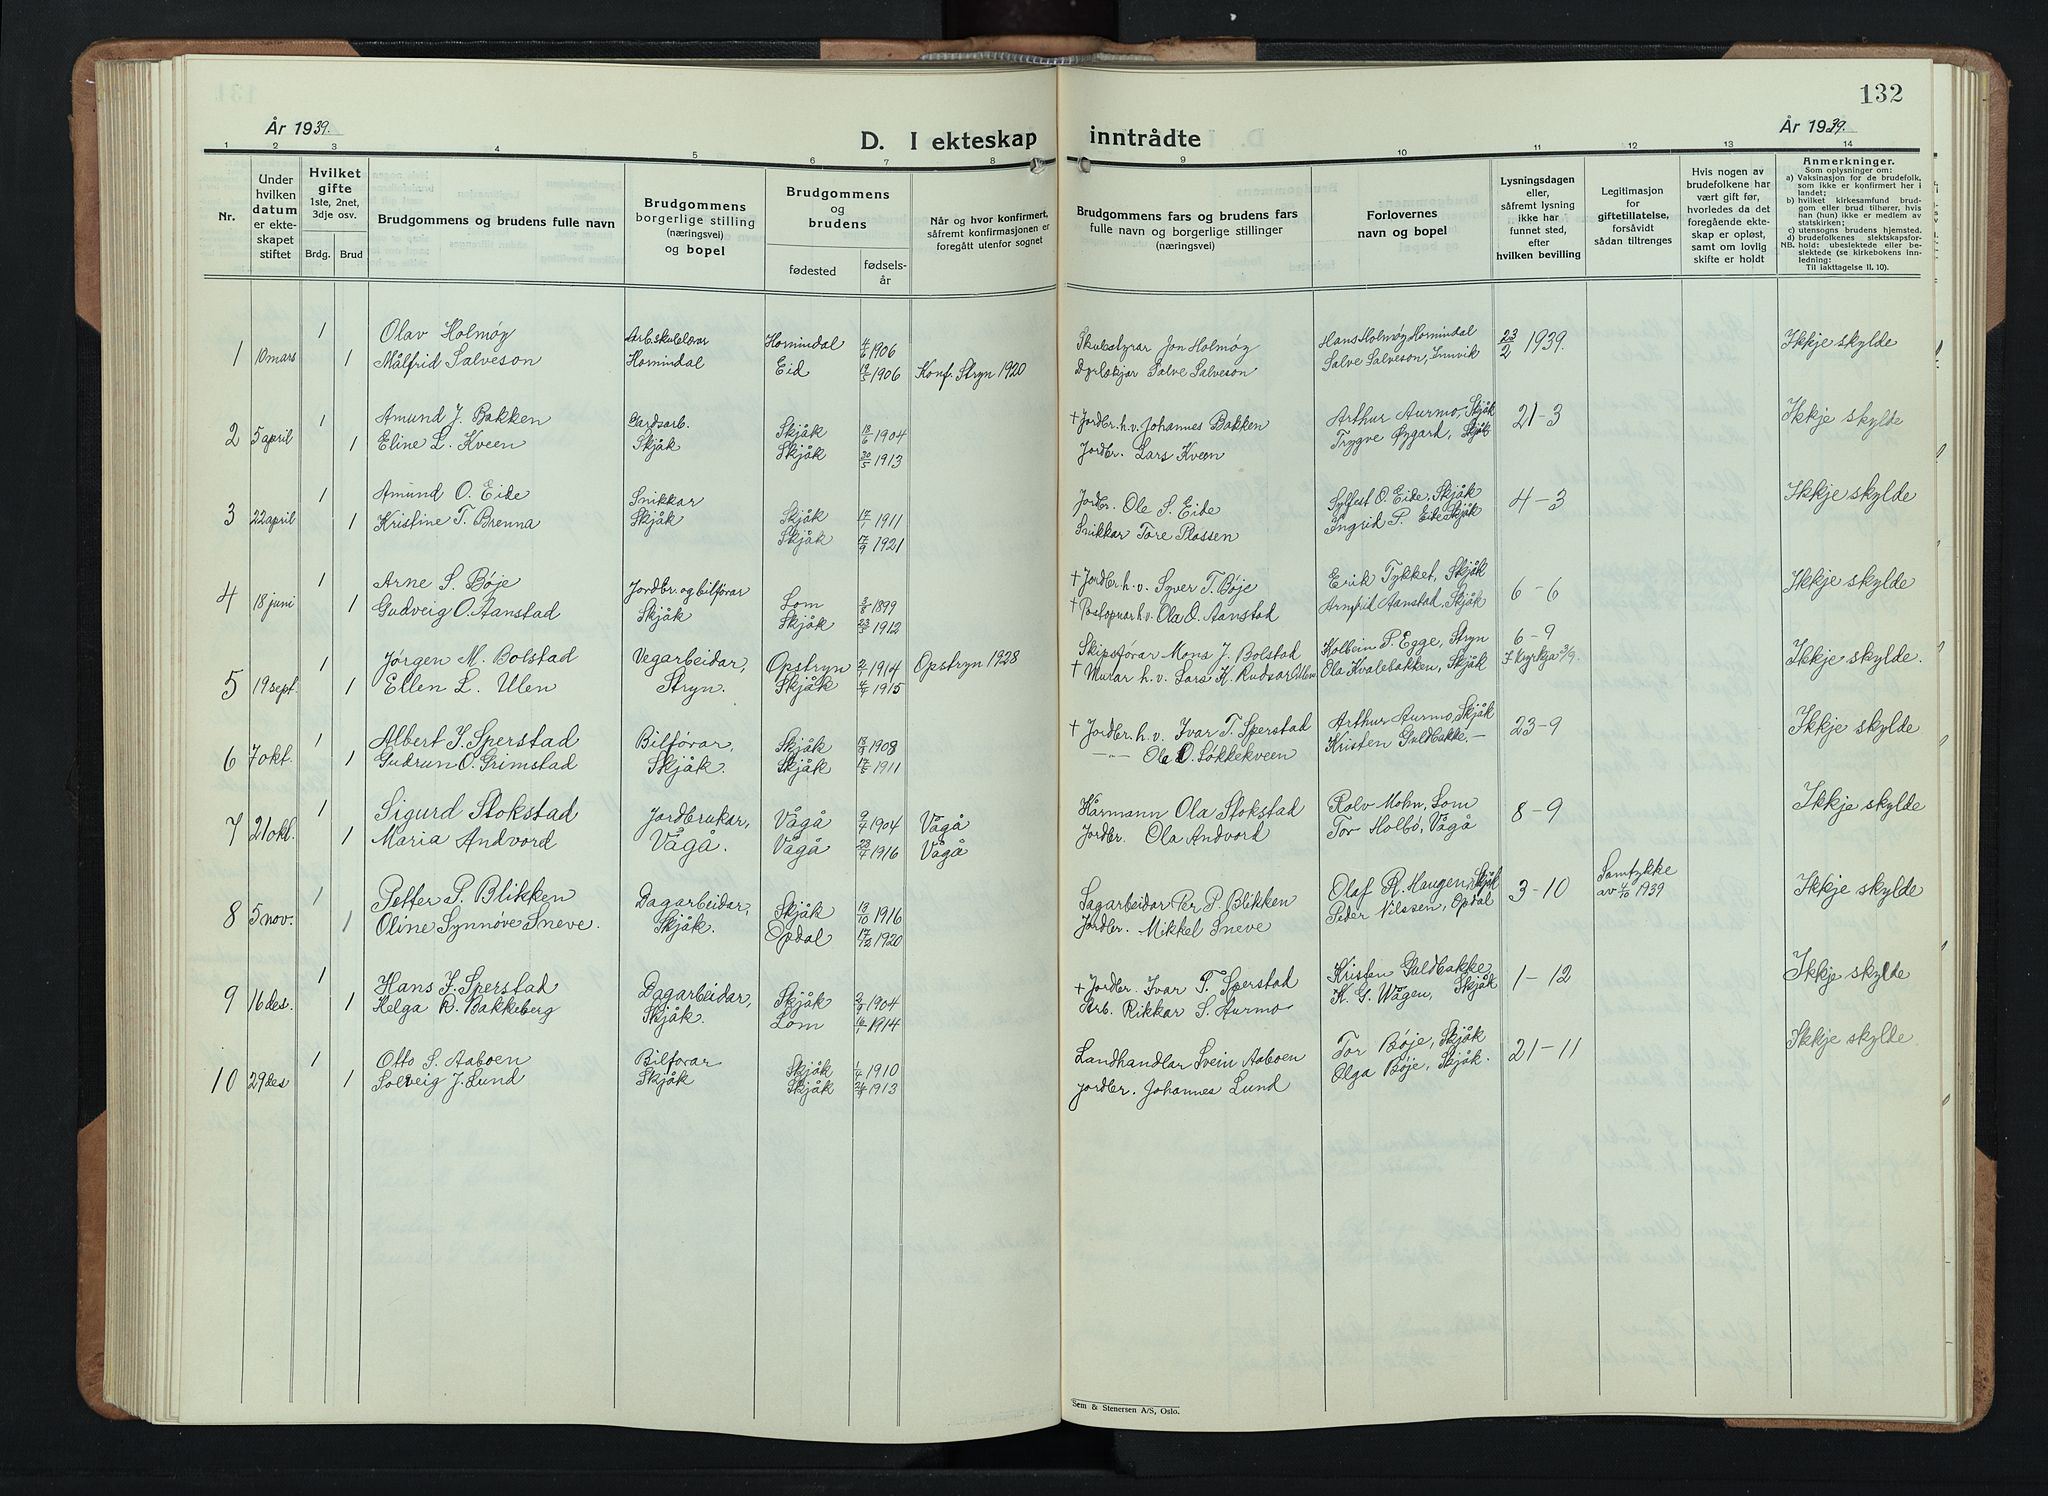 132
År 1939.
D. I ekteskap inntrådte
År 1939.
1 2 3 4 5 6 7 8 9 10 11 12 13 14
Nr.
Under hvilken datum er ekteskapet stiftet
Hvilket gifte 1ste, 2net, 3dje osv.
Brdg. Brud
Brudgommens og brudens fulle navn
Brudgommens borgerlige stilling (næringsvei) og bopel
Brudgommens og brudens
fødested
fødselsår
Når og hvor konfirmert, såfremt konfirmasjonen er foregått utenfor sognet
Brudgommens fars og brudens fars fulle navn og borgerlige stillinger (næringsvei)
Forlovernes navn og bopel
Lysningsdagen eller, såfremt lysning ikke har funnet sted, efter hvilken bevilling
Legitimasjon for giftetillatelse, forsåvidt sådan tiltrenges
Hvis nogen av brudefolkene har vært gift før, hvorledes da det foregående ekteskap er opløst, samt om lovlig skifte er holdt
Anmerkninger.
Som oplysninger om:
a) Vaksinasjon for de brudefolk, som ikke er konfirmert her i landet;
b) hvilket kirkesamfund brudgom eller brud tilhører, hvis han (hun) ikke er medlem av statskirken;
c) utensogns brudens hjemsted.
d) brudefolkenes slektskapsforhold: ubeslektede eller beslektede (se kirkebokens innledning:
NB. Til iakttagelse II. 10).
1 10 mars 1 Olav Holmøy Arb.skulelærar Hornindal 4/6 1906 Skulestyrar Jon Holmøy Hans Holmøy Hornindal 23/2 1939. Ikkje skylde
1 Målfrid Salveson Hornindal Eid 19/5 1906 Konf. Stryn 1920 Dyrlækjar Salve Salveson Salve Salveson, Innvik
2 5 april 1 Amund J. Bakken Gardsarb. Skjåk 18/6 1904 + Jordbr. h.v. Johannes Bakken Arthur Aurmo, Skjåk 21-3 Ikkje skylde
1 Eline L. Kveen Skjåk Skjåk 30/5 1913 Jordbr. Lars Kveen Trygve Øygard, Skjåk
3 22 april 1 Amund O. Eide Snikkar Skjåk 17/1 1911 Jordbr. Ole S. Eide Sylfest O Eide, Skjåk 4-3 Ikkje skylde
1 Kristine T. Brenna Skjåk Skjåk 17/9 1921 Snikkar Tore Plassen Ingrid P. Eide Skjåk
4 18 juni 1 Arne S. Bøje Jordbr. og bilførar Lom 3/8 1899 + Jordbr. h.v. Syver T. Bøje Erik Tykket, Skjåk 6-6 Ikkje skylde
1 Gudveig O. Aanstad Skjåk Skjåk 23/5 1912 + Postopnar h.v. Ola O. Aanstad Arnfrid Aanstad, Skjåk
5 19 sept. 1 Jørgen M. Bolstad Vegarbeidar, Opstryn 2/1 1914 Opstryn 1928 Skipsførar Mons J. Bolstad Kolbein P. Egge, Stryn 6-9 Ikkje skylde.
1 Ellen L. Ulen Stryn. Skjåk 4/4 1915 + Murar h.v. Lars K. Rudsar Ulen Ola Kvalebakken, Skjåk I kyrkja 3/9.
6 7 okt. 1 Albert I. Sperstad Bilførar, Skjåk 13/9 1908 + Jordbr. h.v. Ivar T. Sperstad Arthur Aurmo, Skjåk 23-9 Ikkje skylde
1 Gudrun O. Grimstad Skjåk. Skjåk 17/5 1911 — " — Ole O. Løkkekveen Kristen Guldbakke. —
7 21 okt. 1 Sigurd Stokstad Jordbrukar, Vågå 9/4 1904 Vågå Kårmann Ola Stokstad Rolv Mohn, Lom 8-9 Ikkje skylde
1 Maria Andvord Vågå. Vågå 23/4 1916 Vågå Jordbr. Ola Andvord Tor Holbø, Vågå
8 5 nov. 1 Petter P. Blikken Dagarbeidar, Skjåk 13/10 1916 Sagarbeidar Per P. Blikken Olaf R. Haugen, Skjåk 3-10 Samtykke av 4/10 1939 Ikkje skylde
1 Oline Synnøve Sneve. Skjåk. Opdal 17/2 1920 Jordbr. Mikkel Sneve Peder Nilssen, Opdal
9 16 des. 1 Hans I. Sperstad Dagarbeidar, Skjåk 2/9 1904 + Jordbr. Ivar T. Sperstad Kristen Guldbakke 1-12 Ikkje skylde
1 Helga R. Bakkeberg Skjåk. Lom 16/1 1914 Arb. Rikkar S. Aurmo K. G. Wågen, Skjåk
10 29 des 1 Otto S. Aaboen Bilførar Skjåk 1/4 1910 Landhandlar Svein Aaboen Tor Bøje, Skjåk 21-11 Ikkje skylde
1 Solveig J. Lund Skjåk Skjåk 24/9 1913 Jordbr. Johannes Lund Olga Bøje, Skjåk.
Sem & Stenersen A/S, Oslo.